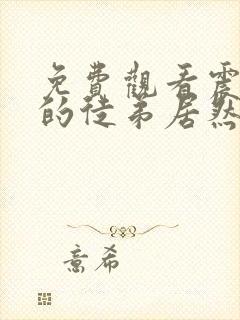 免費觀看震
的徒弟居然
意希